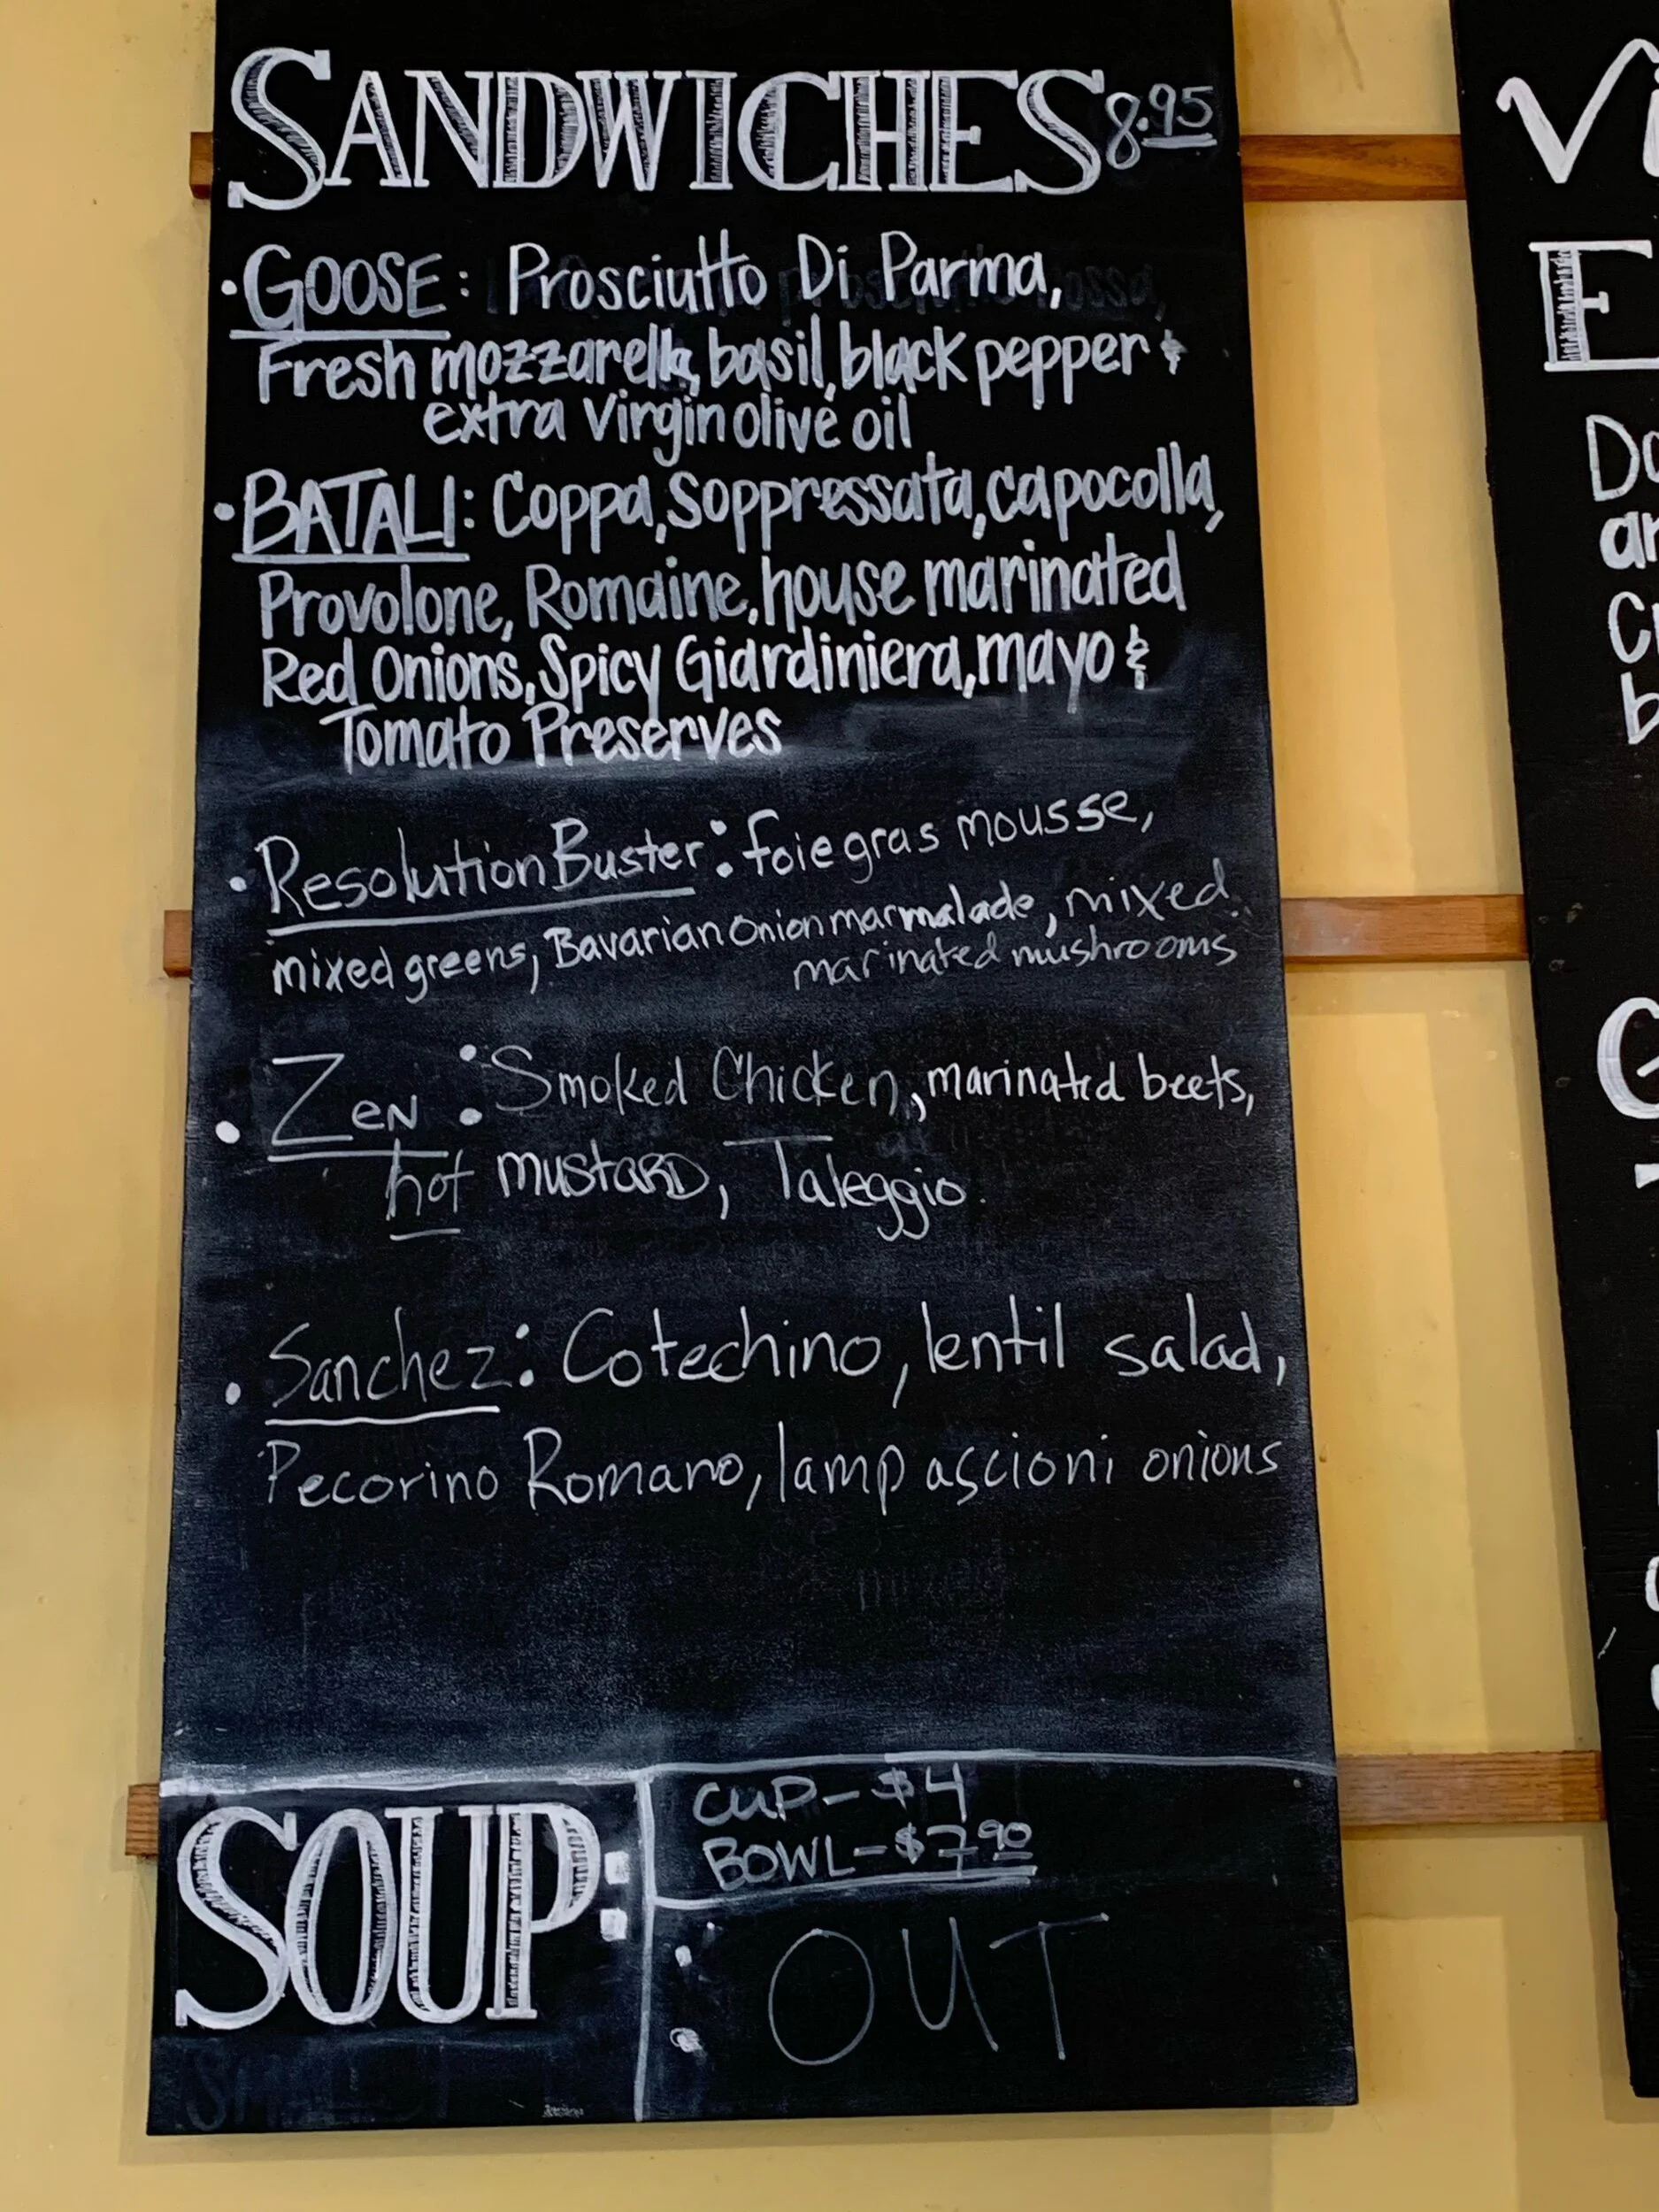 SANDWICHES 8.95
• GOOSE: Prosciutto Di Parma,
Fresh mozzarella, basil, black pepper &
extra virgin olive oil
• BATALI: Coppa, Soppressata, capocolla,
Provolone, Romaine, house marinated
Red Onions, Spicy Giardiniera, mayo &
Tomato Preserves
• Resolution Buster: foie gras mousse,
mixed greens, Bavarian Onion marmalade, mixed
marinated mushrooms
• Zen: Smoked Chicken, marinated beets,
hot mustard, Taleggio.
• Sanchez: Cotechino, lentil salad,
Pecorino Romano, lampascioni onions
SOUP:
CUP - $4
BOWL - $7.90
• OUT
•
Vi
E
Do
ar
Cr
b
G